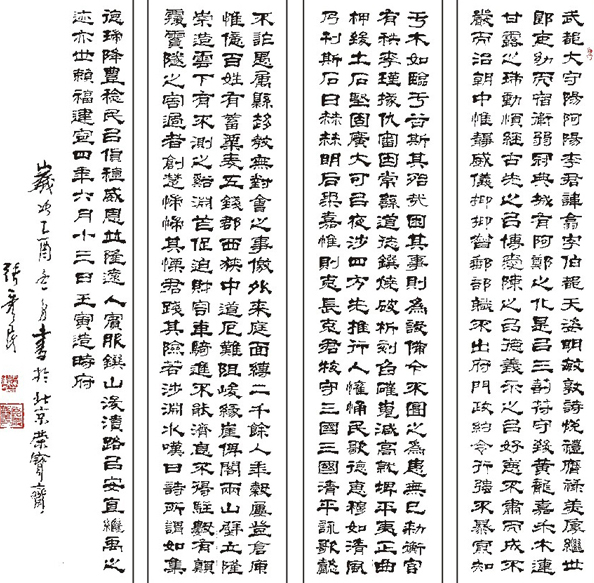 武都大守陽阿陽李君諱翕字伯都天姿明敏敦詩悅禮膺祿美厚繼世
郎吏幼而宿衛弱冠典城有阿鄭之化是以三剖苻守致黃龍嘉禾木連
甘露之瑞動順經古先之以博愛陳之以德義示之以好惡不肅而成不
嚴而治朝中惟靜威儀抑抑督郵部職不出府門政約令行強不暴寡知
于木如臨于谷斯其殆哉困其事則為設備今不圖之為患無已勑衡官
有秩李瑾掾仇審因常繇道徒鐉燒破析刻臽確嵬減高就埤平夷正曲
柙致土石堅固廣大可以夜涉四方无雍行人懽悀民歌德惠穆如清風
乃刊斯石曰赫赫明后柔嘉惟則克長克君牧守三國三國清平詠歌懿
不詐愚屬縣趍教無對會之事徼外來庭面縛二千餘人年穀屢登倉庾
惟億百姓有蓄粟麥五錢郡西狹中道危難阻峻緣崖俾閣兩山壁立隆
崇造雲下有不測之谿淵芒促迫財容車騎進不能濟息不得駐數有顛
覆霣隧之害過者創楚惴惴其慄君踐其險若涉淵水嘆曰詩所謂如集
德瑞降豐稔民以貨稙威恩並隆遠人賓服鐉山浚瀆路以安直繼禹之
迹亦世賴福建寧四年六月十三日壬寅造時府
歲次乙酉冬月書於北京榮寶齋
張